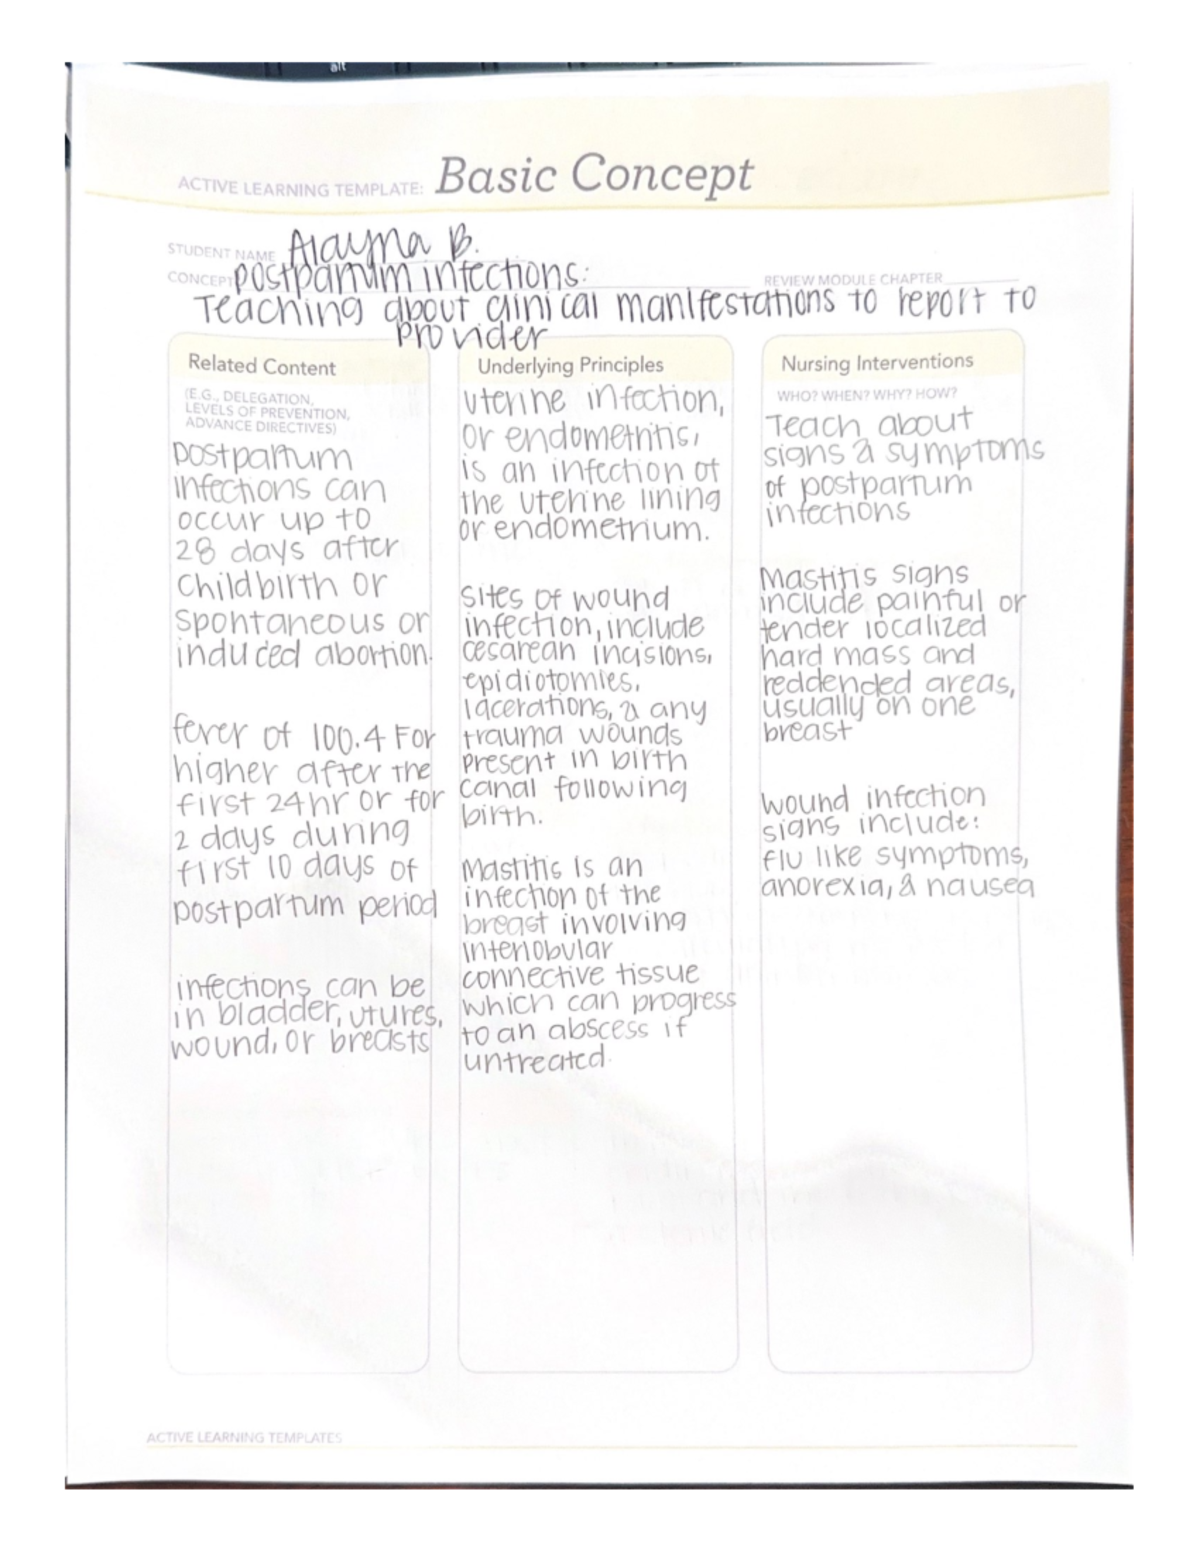 alt
ACTIVE LEARNING TEMPLATE: Basic Concept
STUDENT NAME Alayna B.
CONCEPT postpartum infections:
REVIEW MODULE CHAPTER
Teaching about clinical manifestations to report to
provider
Related Content
(E.G., DELEGATION,
LEVELS OF PREVENTION,
ADVANCE DIRECTIVES)
postpartum
infections can
occur up to
28 days after
childbirth or
spontaneous or
induced abortion.
fever of 100.4 F or
higher after the
first 24hr or for
2 days during
first 10 days of
postpartum period
infections can be
in bladder, utures,
wound, or breasts
Underlying Principles
uterine infection,
or endometritis,
is an infection of
the uterine lining
or endometrium.
sites of wound
infection, include
cesarean incisions,
epidiotomies,
lacerations, & any
trauma wounds
present in birth
canal following
birth.
Mastitis is an
infection of the
breast involving
interlobular
connective tissue
which can progress
to an abscess if
untreated.
Nursing Interventions
WHO? WHEN? WHY? HOW?
Teach about
signs & symptoms
of postpartum
infections
Mastitis signs
include painful or
tender localized
hard mass and
reddended areas,
usually on one
breast
wound infection
signs include:
flu like symptoms,
anorexia, & nausea
ACTIVE LEARNING TEMPLATES